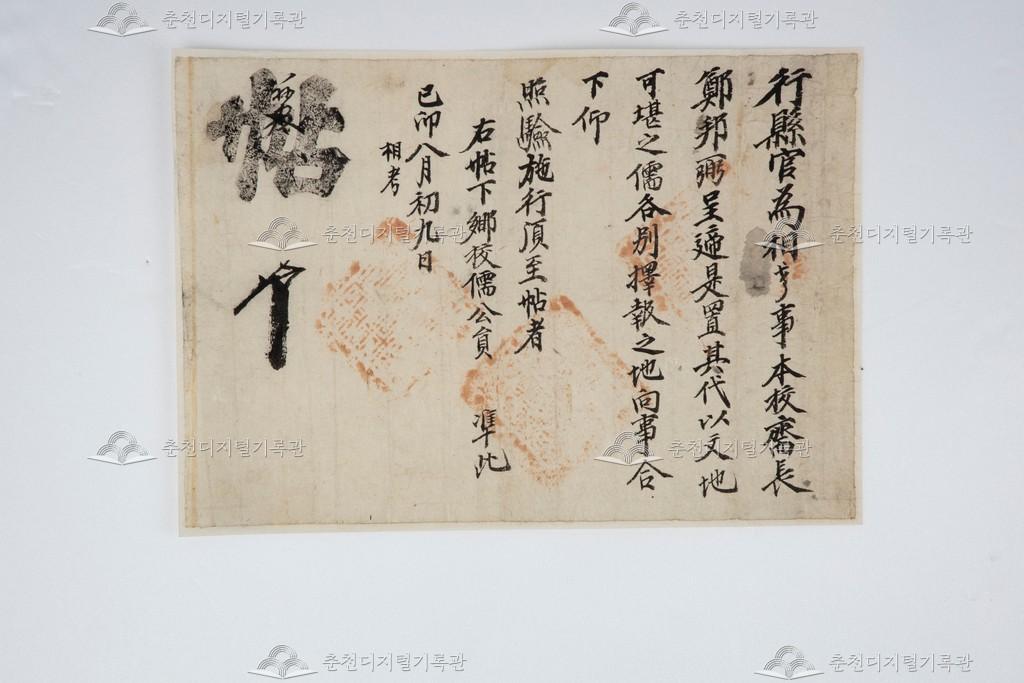 行縣官為相考事本校齋長
鄭邦弼呈遞是置其代以文地
可堪之儒各別擇報之地向事合
下仰
照驗施行須至帖者
右帖下鄉校儒公員 準此
己卯八月初九日
相考
帖
춘천디지털기록관
춘천디지털기록관
춘천디지털기록관
춘천디지털기록관
춘천디지털기록관
춘천디지털기록관
춘천디지털기록관
춘천디지털기록관